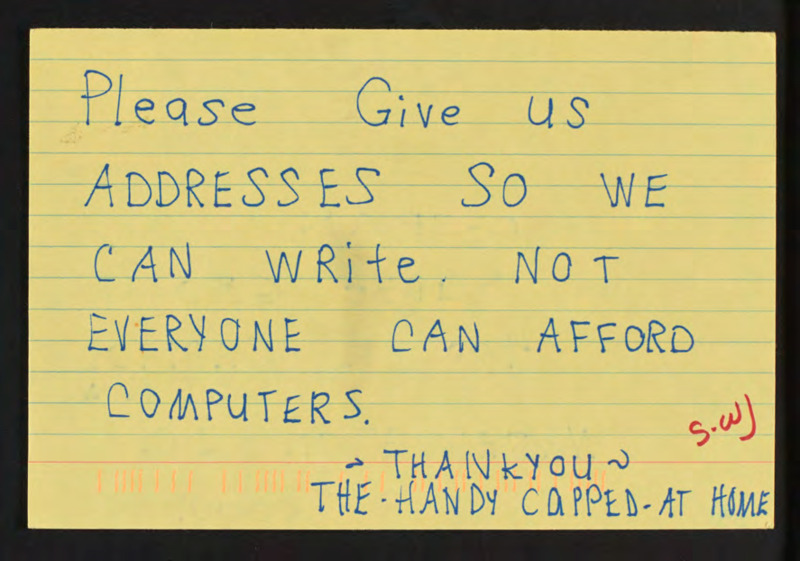 Please Give us
ADDRESSES SO WE
CAN WRite. NOT
EVERYONE CAN AFFORD
COMPUTERS.
S.W)
~ THANKYOU ~
THE-HANDY CAPPED-AT HOME